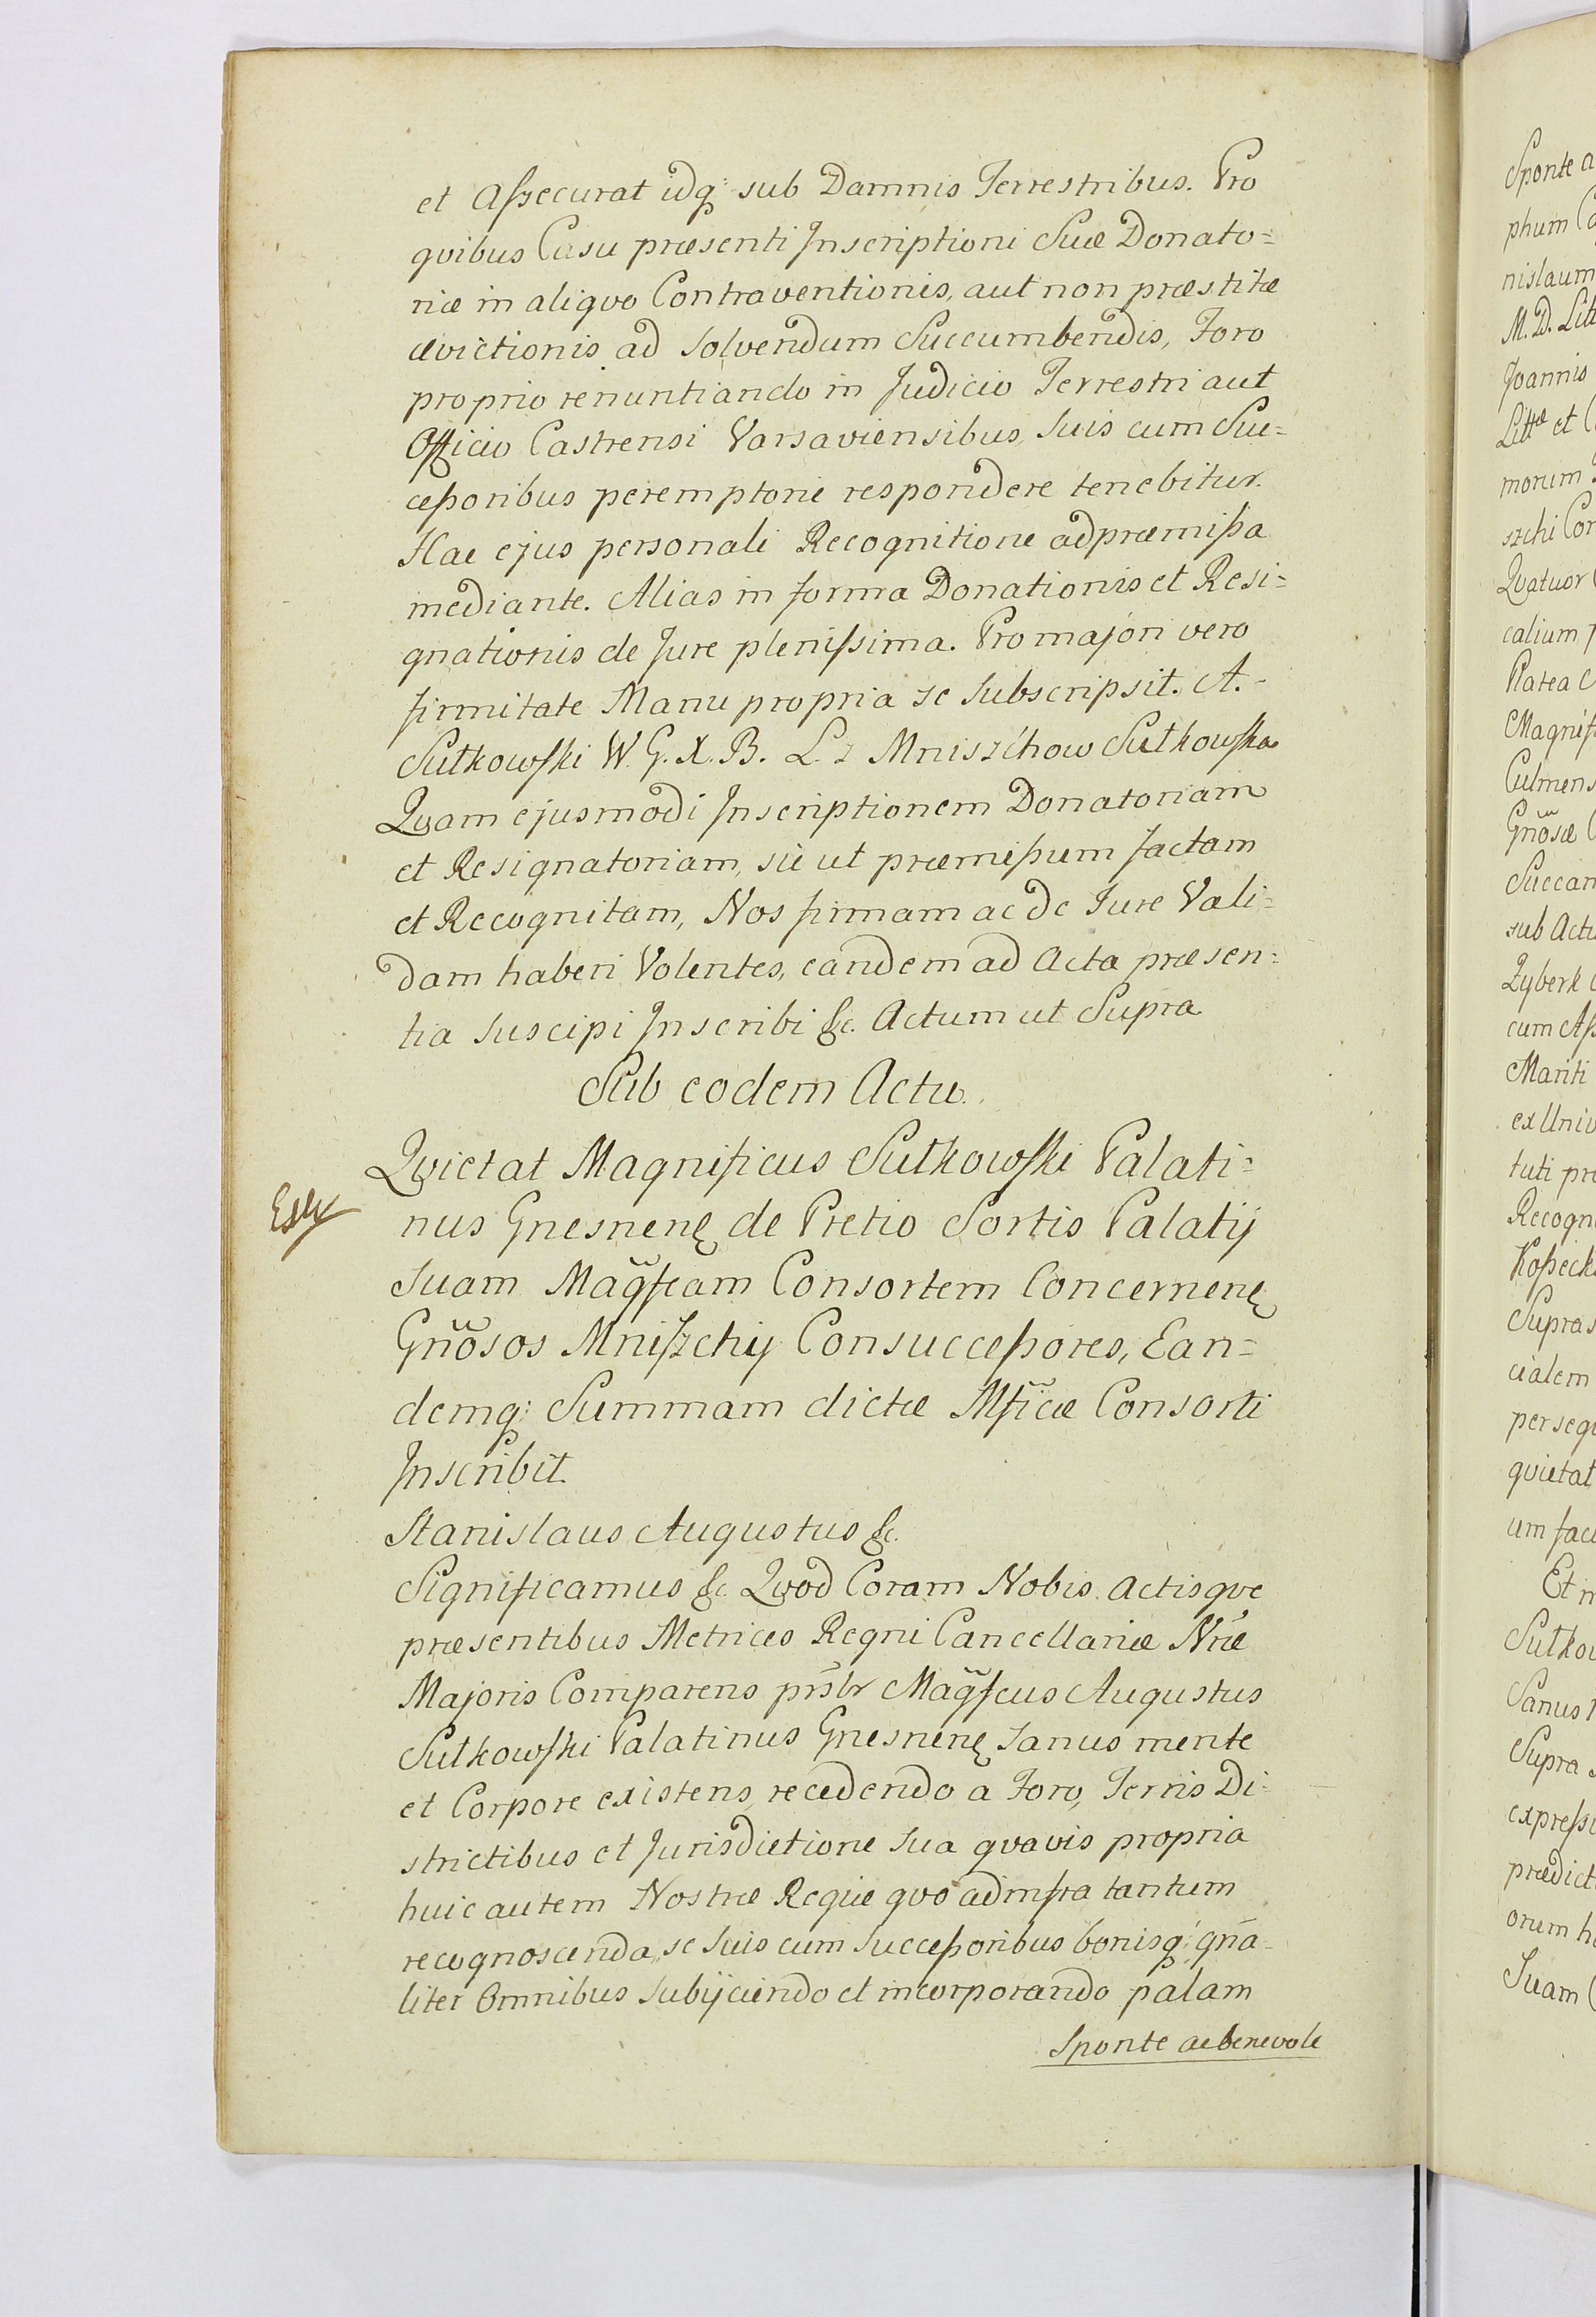 et Assecurat idq: sub Damnis Terrestribus. Pro
qvibus Casu præsenti Inscriptioni Suæ Donato=
riæ in aliqvo Contraventionis, aut non præstitæ
ævictionis ad solvendum Succumbendis, Foro
proprio renuntiando in Judicio Terrestri aut
Officio Castrensi Varsaviensibus, Suis cum Suc=
cessoribus peremptorie respondere tenebitur.
Hac ejus personali Recognitione ad præmissa
mediante. Alias in forma Donationis et Resi=
gnationis de Jure plenissima. Pro majori vero
firmitate Manu propria se Subscripsit. A.
Sułkowski W. G. X. B. L. z Mniszchow Sułkowska
Qvam ejusmodi Inscriptionem Donatoriam
et Resignatoriam, sic ut præmissum factam
et Recognitam, Nos firmam ac de Jure Vali=
dam haberi Volentes, eandem ad Acta præsen=
tia Suscipi Inscribi &c. Actum ut Supra
Sub eodem Actu.
Qvietat Magnificus Sułkowski Palati=
nus Gnesnenę de Pretio Sortis Palatij
Suam Magfcam Consortem Concernenę
Gnosos Mniszchij Consuccessores, Ean=
demq: Summam dictæ Mficæ Consorti
Inscribit.
Stanislaus Augustus &c.
Significamus &c. Qvod Coram Nobis Actisqve
præsentibus Metrices Regni Cancellariæ Nræ
Majoris Comparens prsbr Magfcus Augustus
Sułkowski Palatinus Gnesnenę Sanus mente
et Corpore existens, recedendo a Foro, Terris Di=
strictibus et Jurisdictione Sua qvavis propria
huic autem Nostræ Regiæ qvo ad infra tantum
recognoscenda, se Suis cum Successoribus bonisq: gna=
liter Omnibus Subijciendo et incorporando palam
Sponte ac benevole
Sponte a
phum Ca
nislaum
M. D. Litt
Joannis
Littæ et C
morum
szchi Con
Qvatuor
calium p
Platea C
Magnif
Culmens
Gnosæ C
Succam
sub Actu
Zyberk
cum Ass
Mariti
ex Univ
tuti pro
Recogni
Kossecki
Supras
cialem
per seqv
qvietat
um fac
Et n
Sułkow
Sanus
Supra
expresse
prædict
orum h
Suam